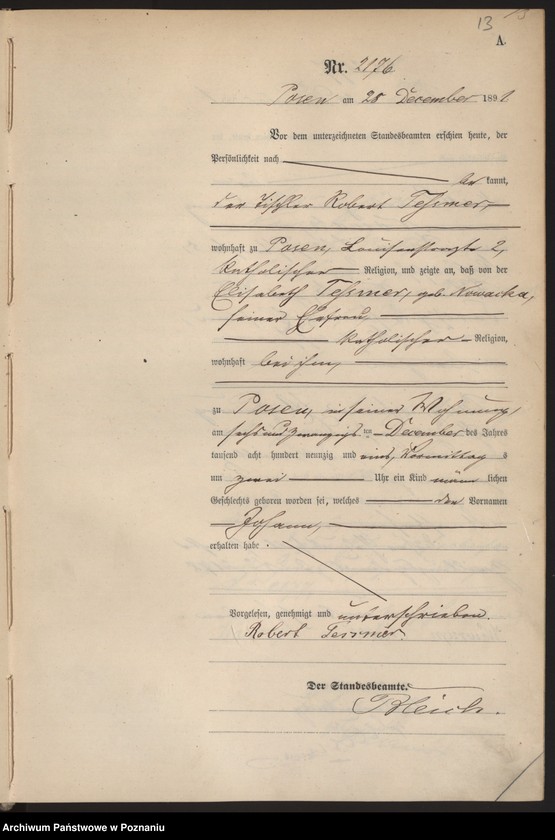 13
A.
Nr. 2176.
Posen am 28 December 1891.
Vor dem unterzeichneten Standesbeamten erschien heute, der
Persönlichkeit nach
be kannt,
der Tischler Robert Tessmer,
wohnhaft zu Posen, Louisenstraße 2,
katholischer Religion, und zeigte an, daß von der
Elisabeth Tessmer, geb. Nowacka,
seiner Ehefrau,
katholischer Religion,
wohnhaft bei ihm,
zu Posen, in seiner Wohnung,
am sechs und zwanzigsten December des Jahres
tausend acht hundert neunzig und eins, Vormittag s
um zwei Uhr ein Kind männ lichen
Geschlechts geboren worden sei, welches den Vornamen
Johann,
erhalten habe.
Vorgelesen, genehmigt und unterschrieben.
Robert Tessmer.
Der Standesbeamte.
Archiwum Państwowe w Poznaniu